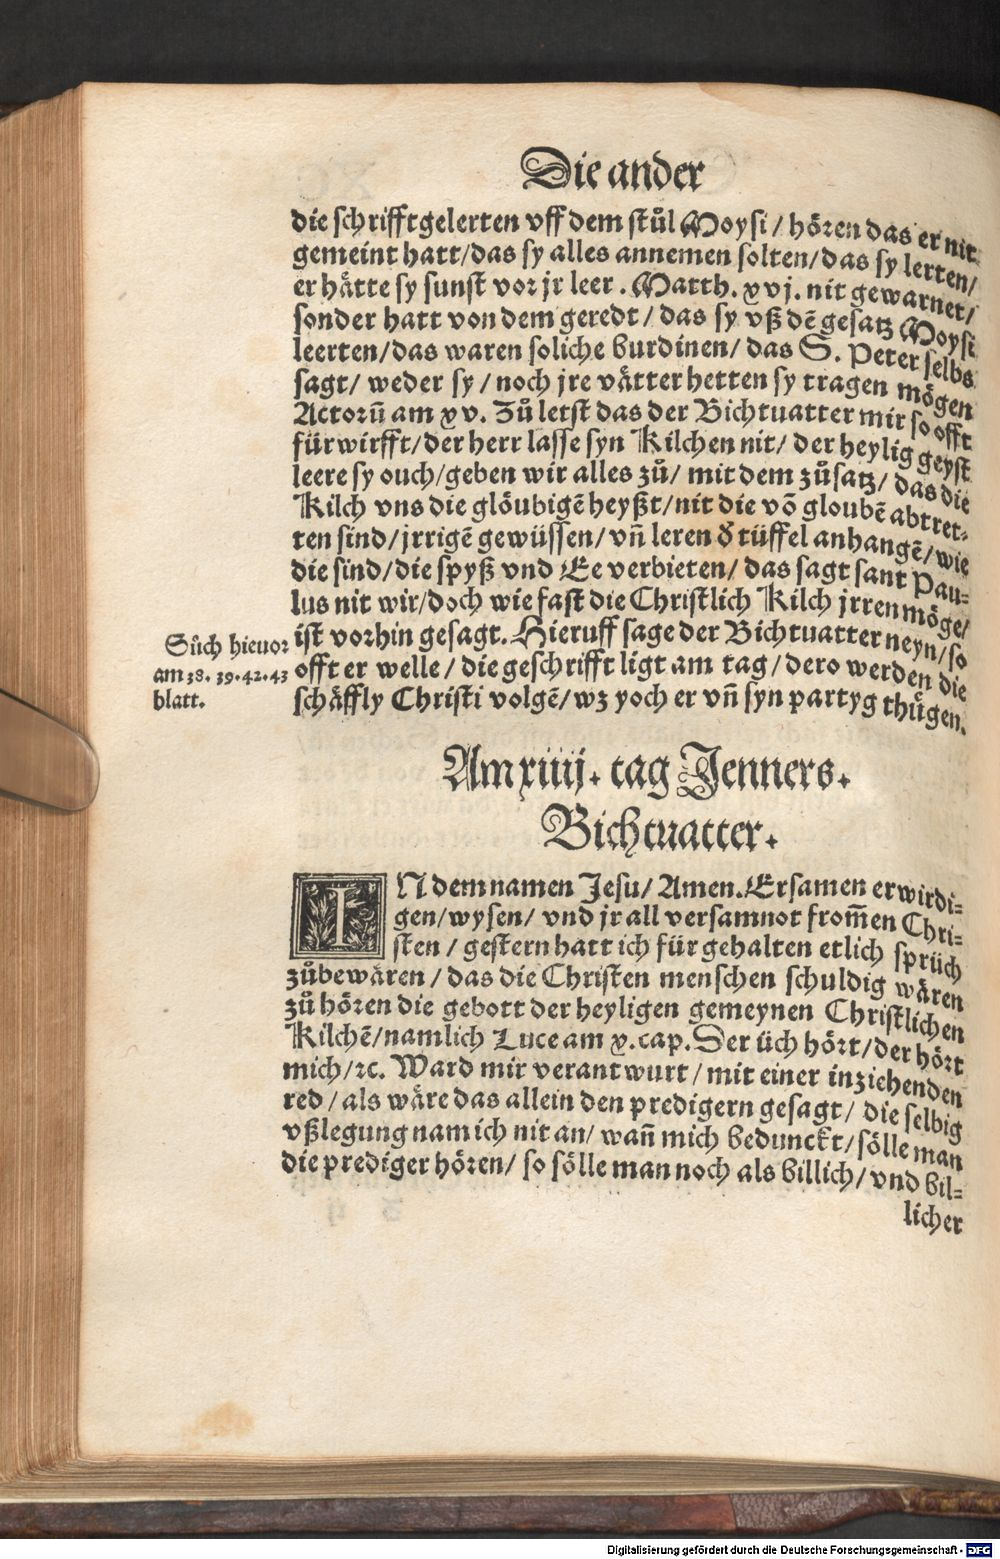 Die ander
die schrifftgelerten vff dem stůl Moysi / hören das er nit
gemeint hatt/das sy alles annemen solten/das sy lerten/
er hätte sy sunst vor jr leer . Matth. xvj. nit gewarnet/
sonder hatt von dem geredt / das sy vß dē gesatz Moysi
leerten/das waren soliche burdinen/ das S. Peter selbs
sagt/ weder sy / noch jre vätter hetten sy tragen mögen
Actorū am xv. Zů letst das der Bichtuatter mir so offt
fürwirfft/der herr lasse syn Kilchen nit/ der heylig geyst
leere sy ouch/geben wir alles zů/ mit dem zůsatz/ das die
Kilch vns die glöubigē heyßt/nit die vō gloubē abtret-
ten sind/jrrigē gewüssen/ vn̄ leren ď tüffel anhangē/wie
die sind/die spyß vnd Ee verbieten/ das sagt sant Pau-
lus nit wir/doch wie fast die Christlich Kilch jrren möge/
ist vorhin gesagt. Hieruff sage der Bichtuatter neyn/so
offt er welle / die geschrifft ligt am tag / dero werden die
schäffly Christi volgē/wz yoch er vn̄ syn partyg thůgen.
Sůch hieuor
am 38. 39. 42. 43
blatt.
Am xiiij. tag Jenners.
Bichtuatter.
IN dem namen Jesu/ Amen. Ersamen erwirdi-
gen/wysen/ vnd jr all versamnot from̄en Chri-
sten / gestern hatt ich für gehalten etlich sprüch
zůbewären / das die Christen menschen schuldig wären
zů hören die gebott der heyligen gemeynen Christlichen
Kilchē/namlich Luce am x. cap. Der üch hört/der hört
mich/ꝛc. Ward mir verantwurt / mit einer inziehenden
red / als wäre das allein den predigern gesagt / die selbig
vßlegung nam ich nit an/ wan̄ mich bedunckt/sölle man
die prediger hören/ so sölle man noch als billich/ vnd bil-
licher
Digitalisierung gefördert durch die Deutsche Forschungsgemeinschaft - DFG